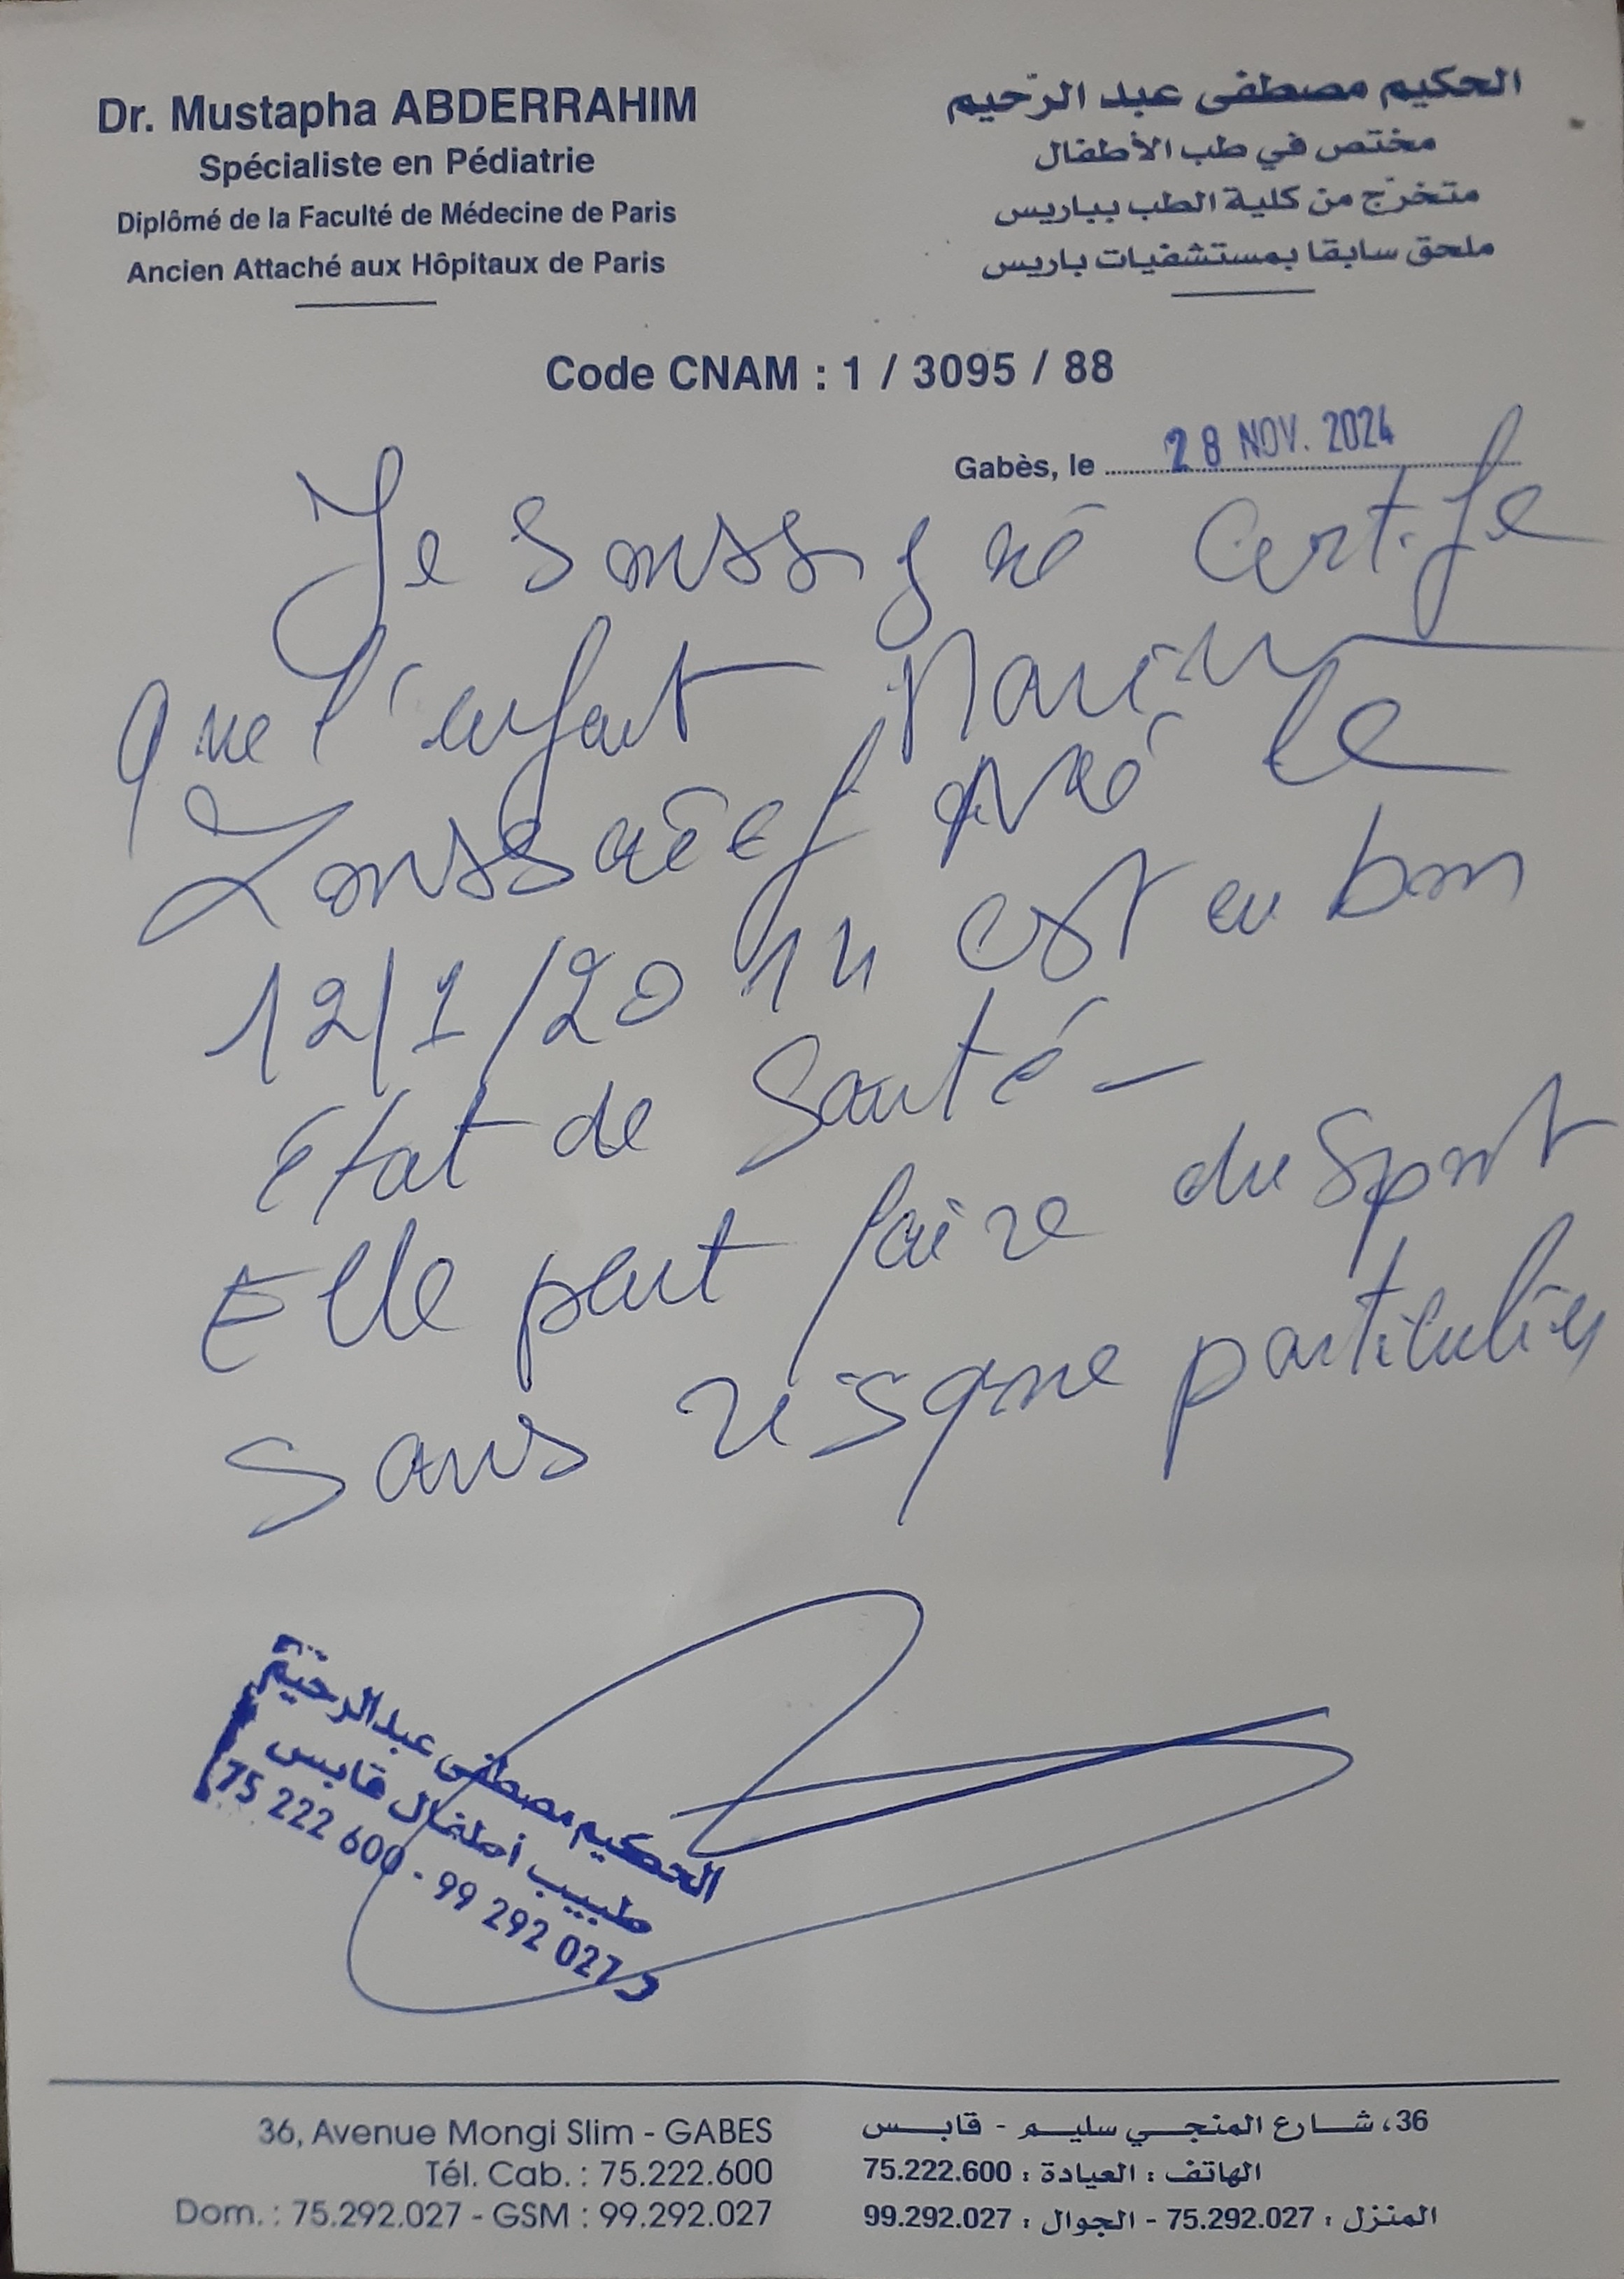 Dr. Mustapha ABDERRAHIM
Spécialiste en Pédiatrie
Diplômé de la Faculté de Médecine de Paris
Ancien Attaché aux Hôpitaux de Paris
الحكيم مصطفى عبد الرّحيم
مختص في طب الأطفال
متخرّج من كلية الطب بباريس
ملحق سابقا بمستشفيات باريس
Code CNAM : 1 / 3095 / 88
Gabès, le 28 NOV. 2024
Je soussigné certifie
que l'enfant
né le
12/1/20 est en bon
état de santé -
Elle peut faire du sport
sans risque particulier
الحكيم مصطفى عبد الرحيم
طبيب أطفال قابس
75 222 600 - 99 292 027
36, Avenue Mongi Slim - GABES
Tél. Cab. : 75.222.600
Dom. : 75.292.027 - GSM : 99.292.027
36، شـــارع المنجـــي سليـــم - قابـــس
الهاتف : العيادة : 75.222.600
المنزل : 75.292.027 - الجوال : 99.292.027